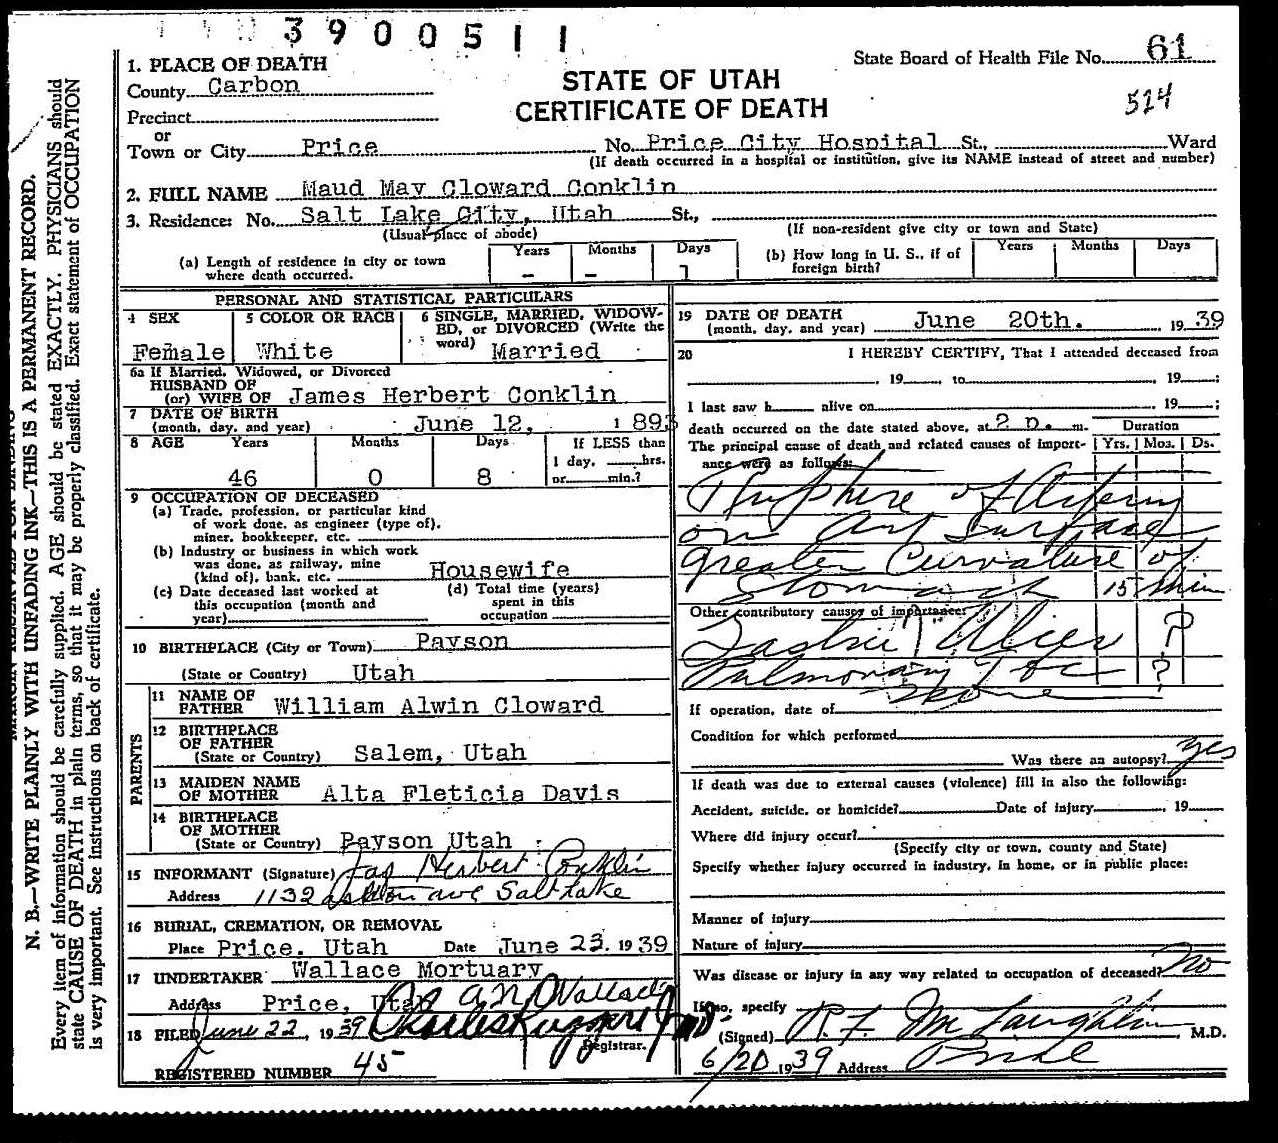 3900511
State Board of Health File No. 61
524
STATE OF UTAH
CERTIFICATE OF DEATH
1. PLACE OF DEATH
County Carbon
Precinct
or
Town or City Price No. Price City Hospital St., Ward
(If death occurred in a hospital or institution, give its NAME instead of street and number)
2. FULL NAME Maud May Cloward Conklin
3. Residence: No. Salt Lake City, Utah St.,
(Usual place of abode) (If non-resident give city or town and State)
(a) Length of residence in city or town where death occurred. Years - Months - Days 1
(b) How long in U. S., if of foreign birth? Years Months Days
PERSONAL AND STATISTICAL PARTICULARS
4 SEX Female
5 COLOR OR RACE White
6 SINGLE, MARRIED, WIDOWED, or DIVORCED (Write the word) Married
6a If Married, Widowed, or Divorced
HUSBAND OF
(or) WIFE OF James Herbert Conklin
7 DATE OF BIRTH
(month, day, and year) June 12, 1893
8 AGE Years Months Days If LESS than
1 day, hrs.
46 0 8 or min.?
9 OCCUPATION OF DECEASED
(a) Trade, profession, or particular kind
of work done, as engineer (type of),
miner, bookkeeper, etc.
(b) Industry or business in which work
was done, as railway, mine
(kind of), bank, etc. Housewife
(c) Date deceased last worked at
this occupation (month and
year)
(d) Total time (years)
spent in this
occupation
10 BIRTHPLACE (City or Town) Payson
(State or Country) Utah
PARENTS
11 NAME OF
FATHER William Alwin Cloward
12 BIRTHPLACE
OF FATHER
(State or Country) Salem, Utah
13 MAIDEN NAME
OF MOTHER Alta Fleticia Davis
14 BIRTHPLACE
OF MOTHER
(State or Country) Payson Utah
15 INFORMANT (Signature) Jas Herbert Conklin
Address 1132 Ashton ave Salt Lake
16 BURIAL, CREMATION, OR REMOVAL
Place Price. Utah Date June 23. 1939
17 UNDERTAKER Wallace Mortuary
Address Price, Utah A N Wallace
18 FILED June 22, 1939 Charles Ruggeri Jr MD.
Registrar.
REGISTERED NUMBER 45
19 DATE OF DEATH
(month, day, and year) June 20th. 1939
20 I HEREBY CERTIFY, That I attended deceased from
, 19 , to 19 ;
I last saw h alive on 19 ;
death occurred on the date stated above, at 2 p. m. Duration
The principal cause of death and related causes of importance were as follows: Yrs. Mos. Ds.
Rupture of Artery
on Ant Surface
greater Curvature of
Stomach 15 Min
Other contributory causes of importance:
Gastric Ulcer ?
Pulmonary Tbc ?
If operation, date of None
Condition for which performed
Was there an autopsy? Yes
If death was due to external causes (violence) fill in also the following:
Accident, suicide, or homicide? Date of injury 19
Where did injury occur?
(Specify city or town, county and State)
Specify whether injury occurred in industry, in home, or in public place:
Manner of injury
Nature of injury
Was disease or injury in any way related to occupation of deceased? No
If so, specify
(Signed) R. F. McLaughlin M.D.
6/20 1939 Address Price
N. B.—WRITE PLAINLY WITH UNFADING INK—THIS IS A PERMANENT RECORD.
Every item of information should be carefully supplied. AGE should be stated EXACTLY. PHYSICIANS should
state CAUSE OF DEATH in plain terms, so that it may be properly classified. Exact statement of OCCUPATION
is very important. See instructions on back of certificate.